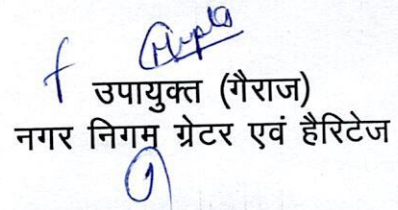 उपायुक्त (गैराज)
नगर निगम ग्रेटर एवं हैरिटेज